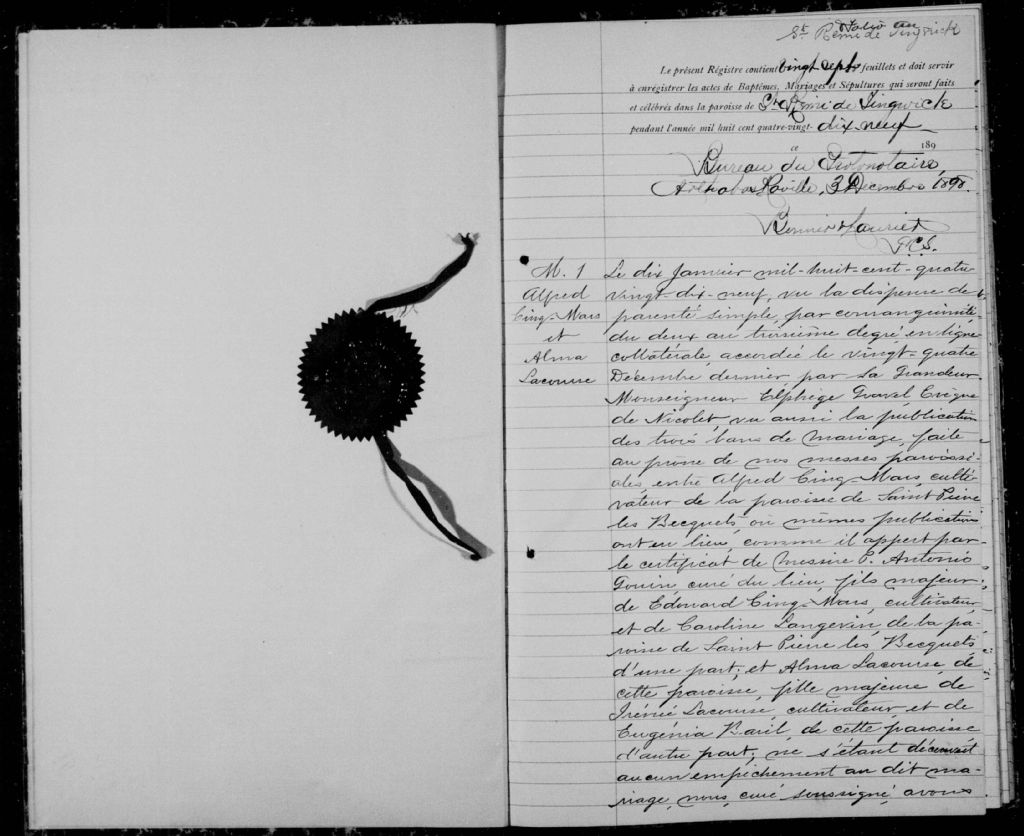 Folio un
St. Rémi de Tingwick
Le présent Régistre contient vingt sept feuillets et doit servir
à enregistrer les actes de Baptêmes, Mariages et Sépultures qui seront faits
et célébrés dans la paroisse de St. Rémi de Tingwick
pendant l'année mil huit cent quatre-vingt-dix-neuf
ce 189
Bureau du Protonotaire,
Arthabaskaville, 3 Décembre 1898.
P.C.S.
M. 1
Alfred
Cinq-Mars
et
Alma
Lacourse
Le dix Janvier mil-huit-cent-quatre
vingt-dix-neuf, vu la dispense de
parenté simple, par consanguinité
du deux au troisième degré en ligne
collatérale, accordée le vingt-quatre
Décembre dernier, par Sa Grandeur
Monseigneur Elphège Gravel Evêque
de Nicolet, vu aussi la publication
des trois bans de mariage, faite
au prône de nos messes paroissi-
ales entre Alfred Cinq-Mars, culti-
vateur de la paroisse de Saint Pierre
les Becquets, où mêmes publications
ont eu lieu, comme il appert par
le certificat de messire P. Antonio
Gouin, curé du lieu, fils majeur
de Edouard Cinq-Mars, cultivateur,
et de Caroline Langevin, de la pa-
roisse de Saint Pierre les Becquets,
d'une part; et Alma Lacourse, de
cette paroisse, fille majeure de
Irénée Lacourse, cultivateur, et de
Eugénia Baril, de cette paroisse
d'autre part; ne s'étant découvert
aucun empêchement au dit ma-
riage, nous, curé soussigné, avons